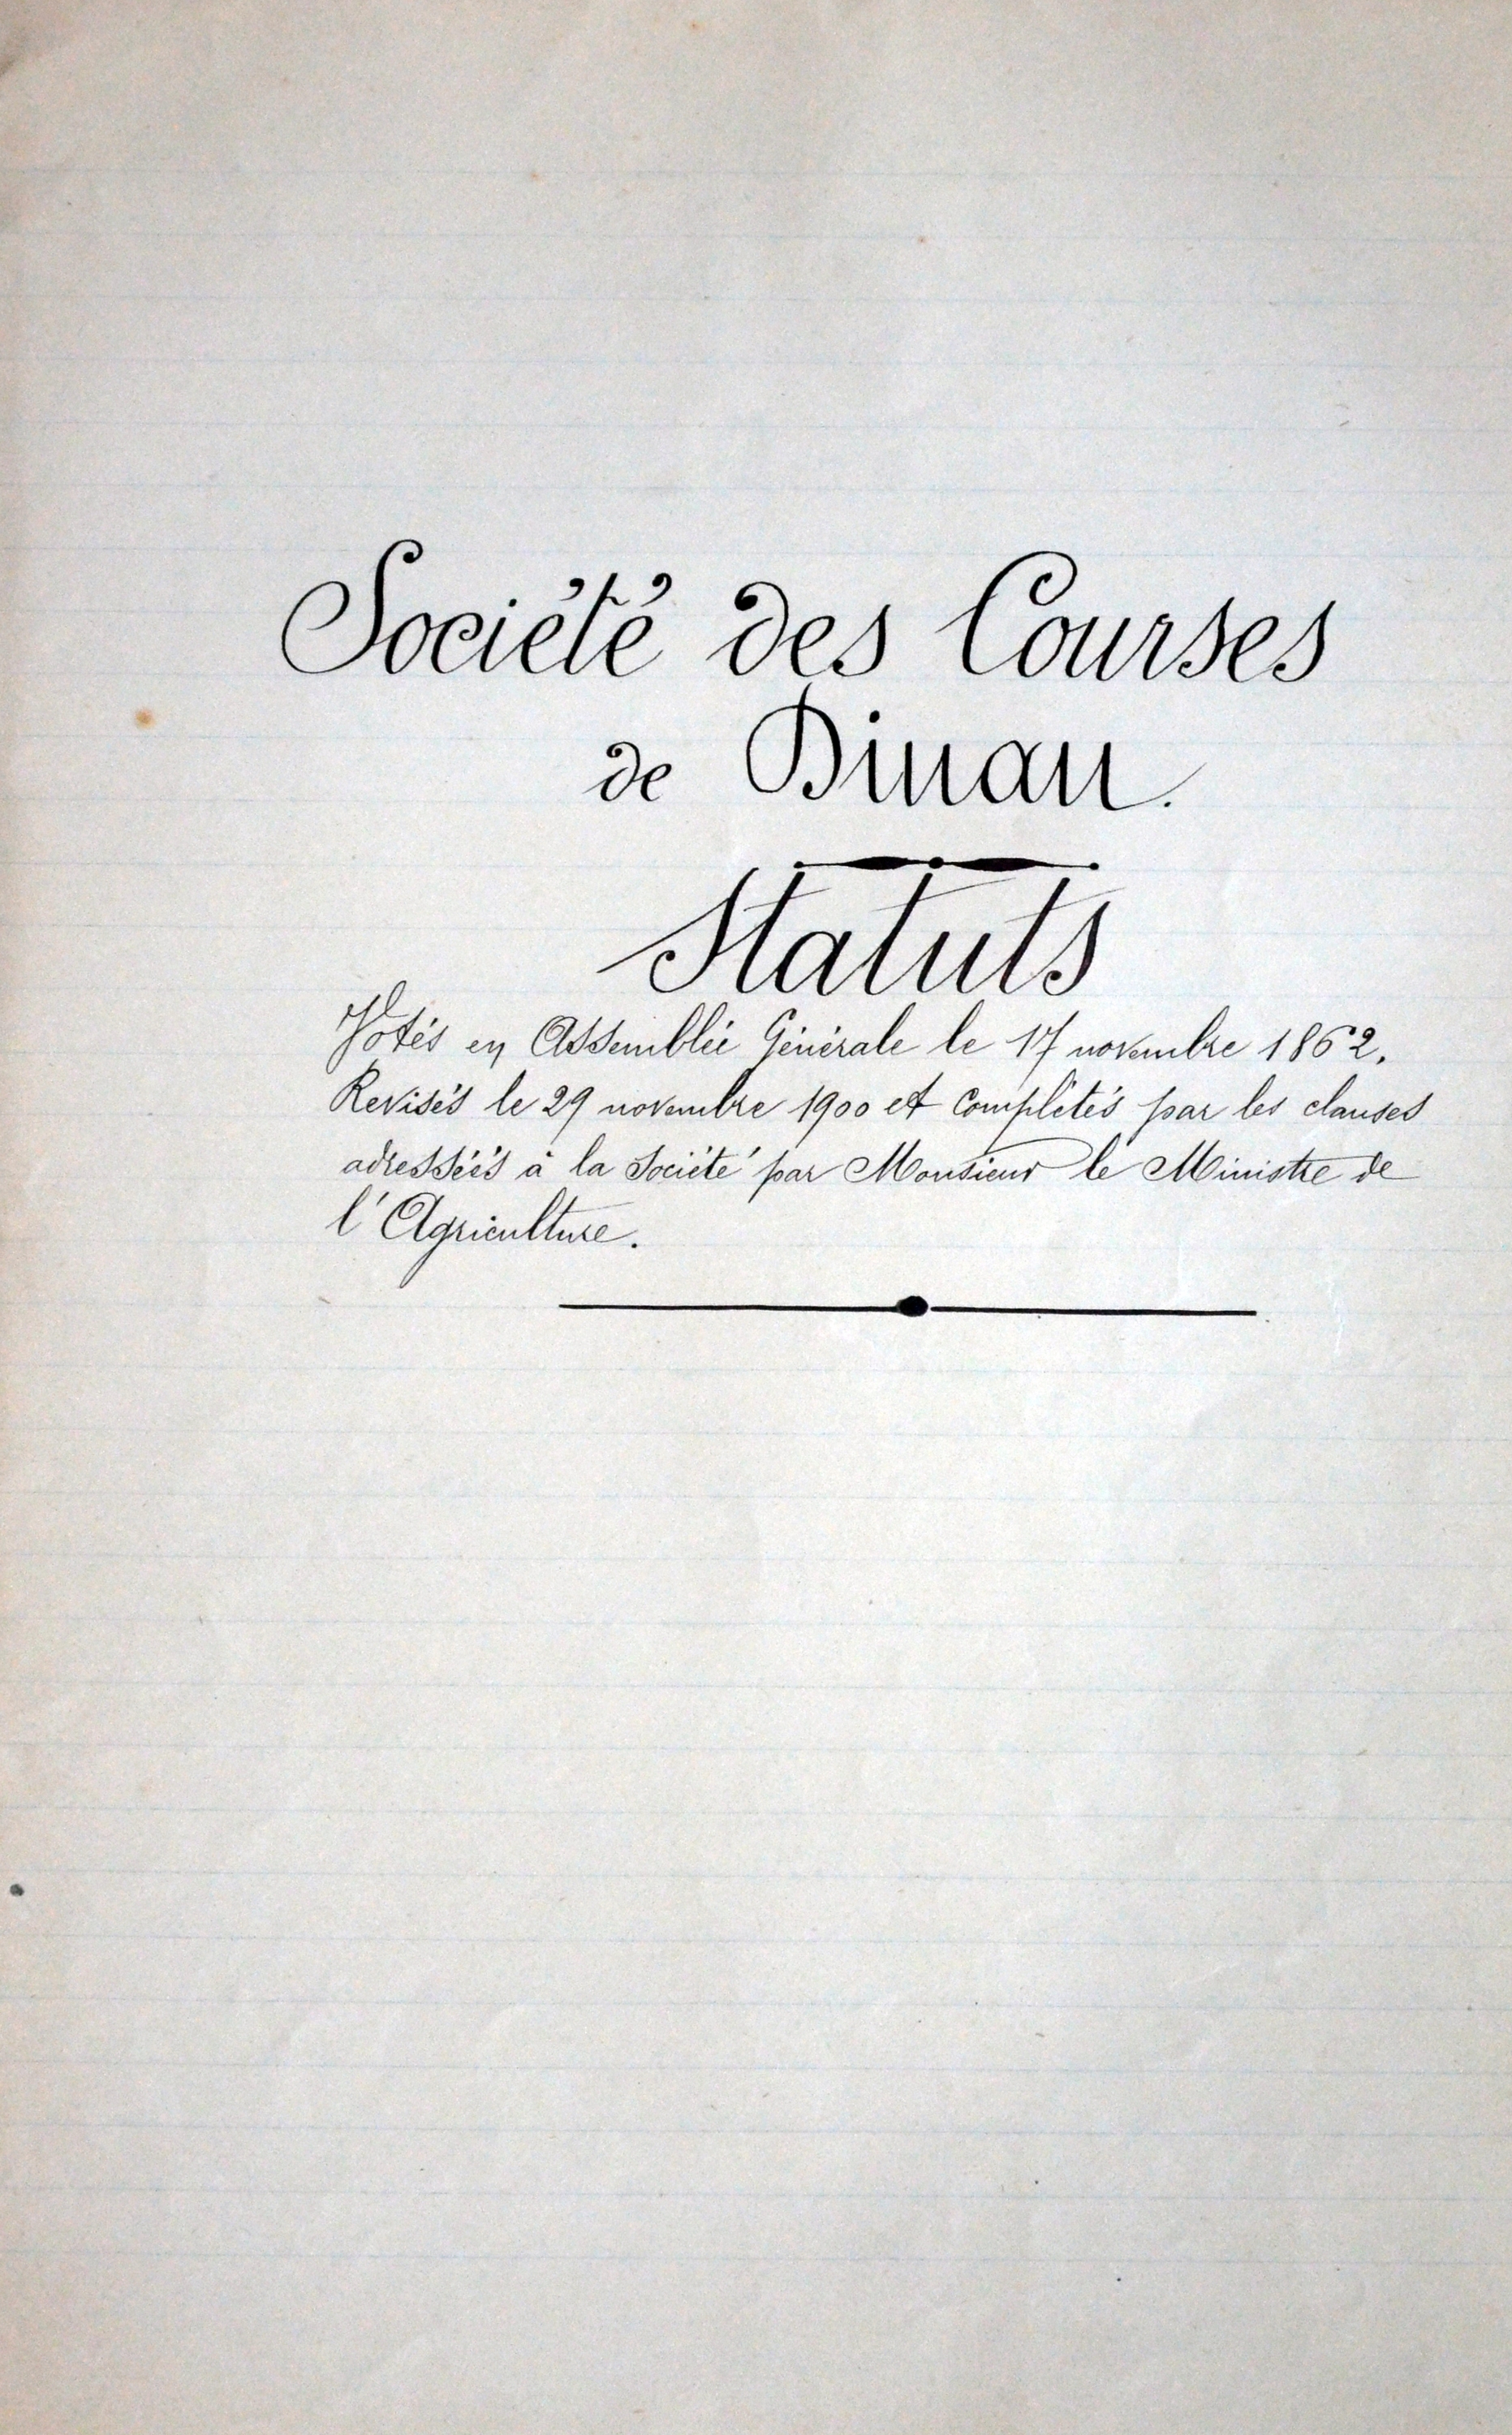 Société des Courses
de Dinan.
Statuts
Votés en Assemblée Générale le 17 novembre 1862.
Revisés le 29 novembre 1900 et complétés par les clauses
adressées à la Société par Monsieur le Ministre de
l'Agriculture.